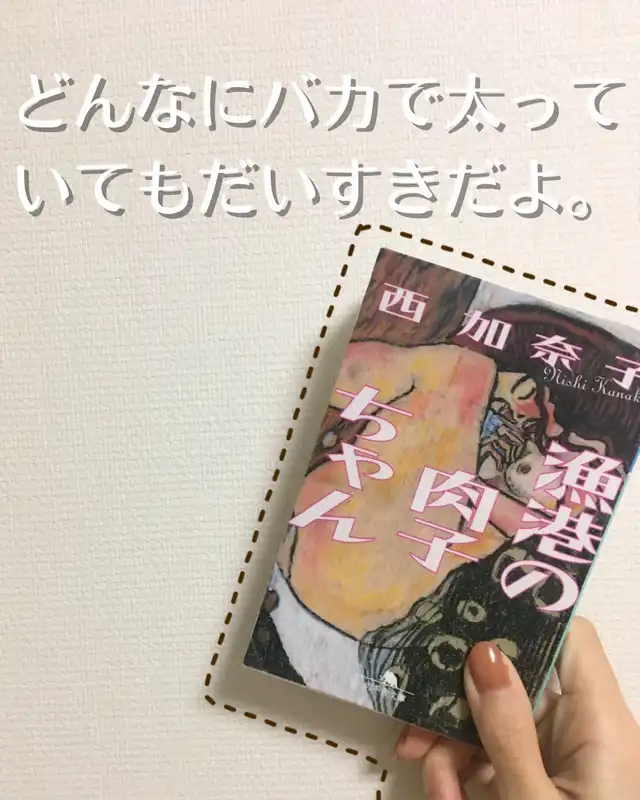 どんなにバカで太って
いてもだいすきだよ。
西加奈子
Nishi Kanak
漁港の
肉子
ちゃん